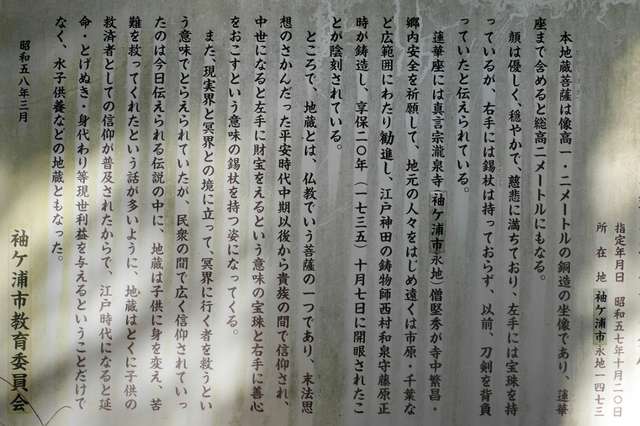 指定年月日　昭和五七年十月二〇日
所在地　袖ケ浦市永地一四七三
本地蔵菩薩は像高一・二メートルの銅造の坐像であり、蓮華
座まで含めると総高二メートルにもなる。
顔は優しく、穏やかで、慈悲に満ちており、左手には宝珠を持
っているが、右手には錫杖は持っておらず、以前、刀剣を背負
っていたと伝えられている。
蓮華座には真言宗瀧泉寺(袖ケ浦市永地)僧堅秀が寺中繁昌・
郷内安全を祈願して、地元の人々をはじめ遠くは市原・千葉な
ど広範囲にわたり勧進し、江戸神田の鋳物師西村和泉守藤原正
時が鋳造し、享保二〇年(一七三五)十月七日に開眼されたこ
とが陰刻されている。
ところで、地蔵とは、仏教でいう菩薩の一つであり、末法思
想のさかんだった平安時代中期以後から貴族の間で信仰され、
中世になると左手に財宝をえるという意味の宝珠と右手に善心
をおこすという意味の錫杖を持つ姿になってくる。
また、現実界と冥界との境に立って、冥界に行く者を救うとい
う意味でとらえられていたが、民衆の間で広く信仰されていっ
たのは今日伝えられる伝説の中に、地蔵は子供に身を変え、苦
難を救ってくれたという話が多いように、地蔵はとくに子供の
救済者としての信仰が普及されたからで、江戸時代になると延
命・とげぬき・身代わり等現世利益を与えるということだけで
なく、水子供養などの地蔵ともなった。
昭和五八年三月
袖ケ浦市教育委員会